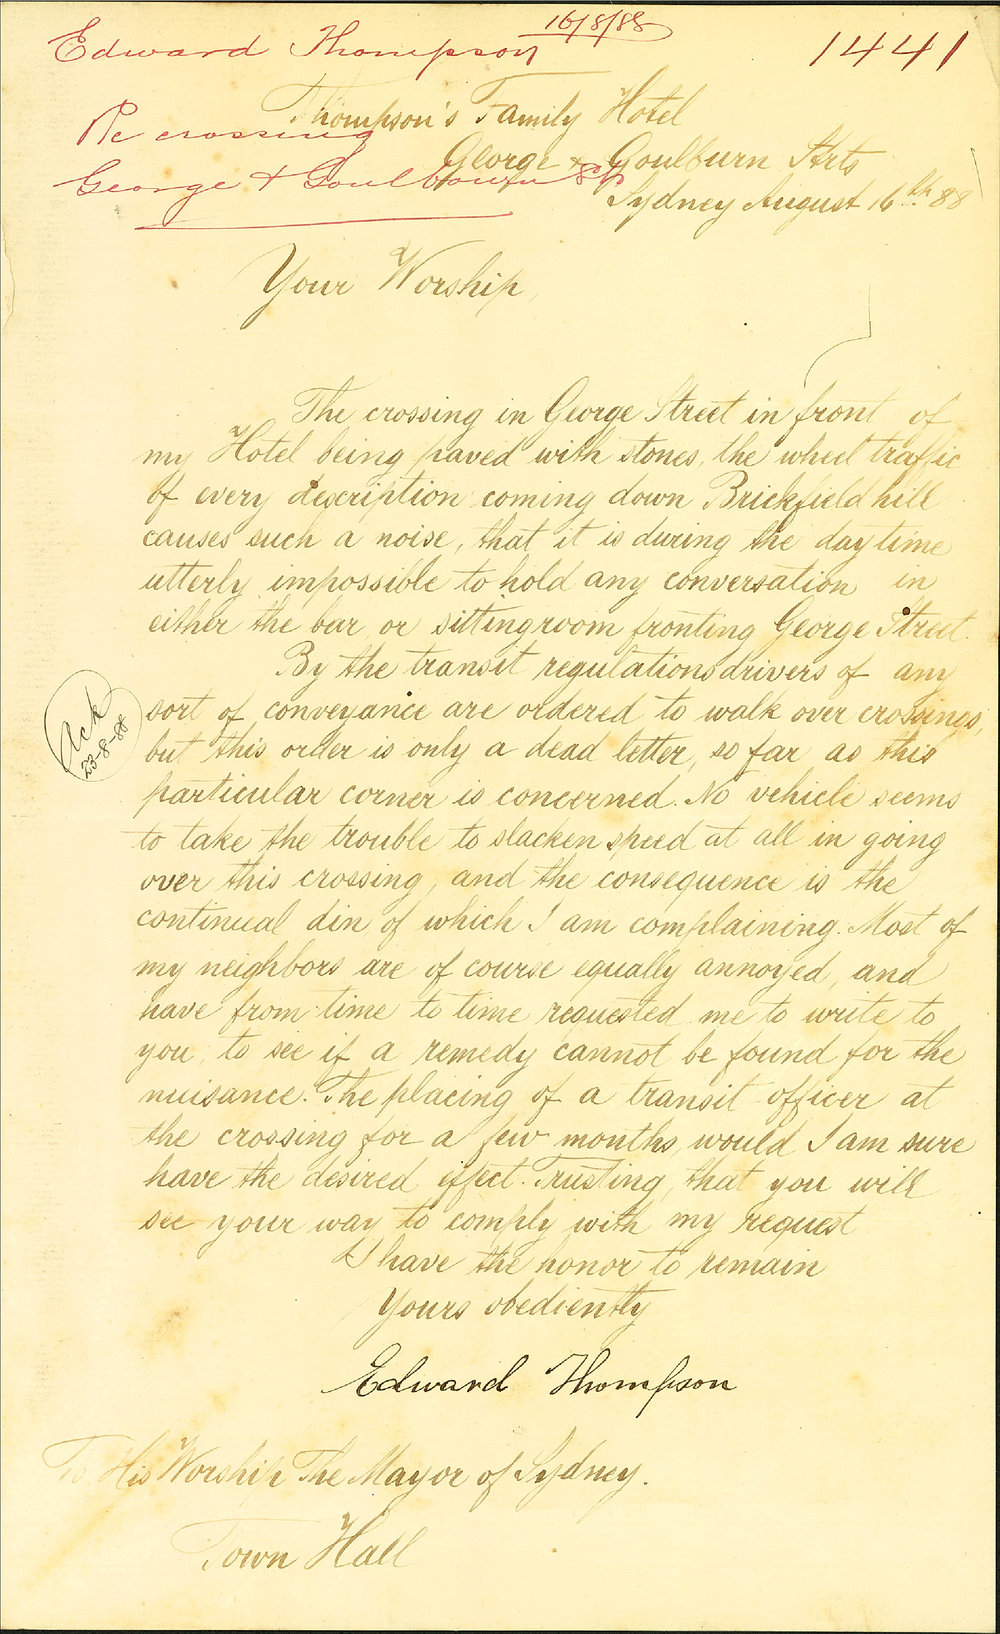 Edward Thompson 16/8/88
1441
Re crossing
George & Goulbourn Sts
Thompson's Family Hotel
George & Goulburn Strts
Sydney August 16th 88
Your Worship,
The crossing in George Street in front of
my Hotel being paved with stones, the wheel traffic
of every description coming down Brickfield hill
causes such a noise, that it is during the day time
utterly impossible to hold any conversation in
either the bar or sittingroom fronting George Street.
By the transit regulations drivers of any
sort of conveyance are ordered to walk over crossings,
but this order is only a dead letter, so far as this
particular corner is concerned. No vehicle seems
to take the trouble to slacken speed at all in going
over this crossing, and the consequence is the
continual din of which I am complaining. Most of
my neighbors are of course equally annoyed, and
have from time to time requested me to write to
you, to see if a remedy cannot be found for the
nuisance. The placing of a transit officer at
the crossing for a few months, would I am sure
have the desired effect. Trusting, that you will
see your way to comply with my request
I have the honor to remain
Yours obediently
Edward Thompson
To His Worship The Mayor of Sydney.
Town Hall
Ack
23-8-88